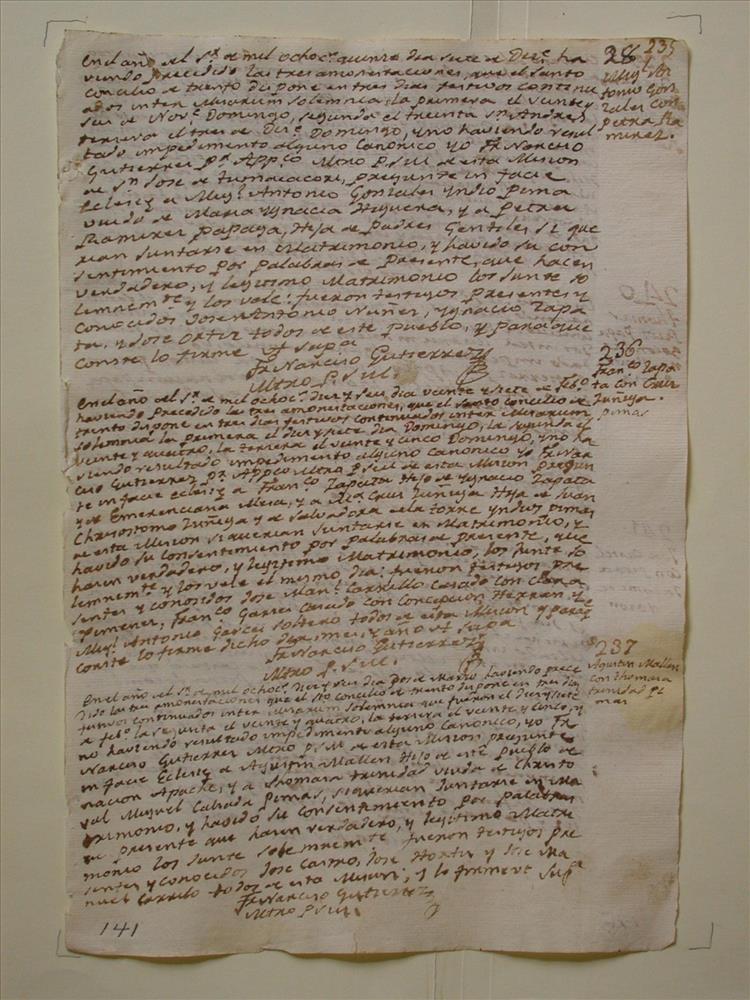 En el año del Sr. de mil ochoc.s quinze dia siete de Dic.e ha
viendo precedido las tres amonestaciones, que el Santo
Concilio de trento dispone en tres dias festivos continu
ados inter Misarum Solemnia, la primera el veinte y
seis de Nov.e Domingo, segunda el treinta Sn. Andres
tersera el tres de Dic.e Domingo, y no haviendo resul
tado impedimento alguno Canonico yo Fr. Narciso
Gutierres Pr. App.co Mtro P.S.M. de esta Mision
de Sn. Jose de Tumacacori, pregunte in facie
Eclesię a Mig.l Antonio Gonzales Yndio Pima
viudo de Maria Ygnacia Higuera, y a Petra
Ramirez Papaga, Hija de Padres Gentiles si que
rian Juntarse en Matrimonio, y havido su con
sentimiento por palabras de Presente, que hacen
verdadero, y legitimo Matrimonio los Junte so
lemnem.te y los vele: fueron testigos presentes y
Conocidos Jose Antonio Nuñez, Ygnacio Zapa
ta, y Jose Ortiz todos de este Pueblo, y para que
Conste lo firme Vt Supa
Fr Narciso Gutierrez
Mtro P. S.M.
28 235
Mig.l An
tonio Gon
zales con
Petra Ra
mirez.
236
Fran.co Zapa
ta con Cruz
Zuñiga.
Pimas
En el año del Sr. de mil ochoc.s diez y seis dia veinte y siete de Feb.o
haviendo precedido las tres amonestaciones, que el santo concilio de
trento dispone en tres dias festivos continuados inter Misarum
Solemnia la primera el diez y siete dia Domingo, la segunda el
veinte y quatro, la tersera el veinte y cinco Domingo, y no ha
viendo resultado impedimento alguno canonico yo Fr. Nar
ciso Gutierrez Pr. App.co Mtro P.S.M de esta Mision pregun
te in facie Eclesię a Fran.co Zapata Hijo de Ygnacio Zapata
y de Emerenciana Mesa, y a M.a Cruz Zuñiga Hija de Juan
Chrisostomo Zuñiga y de Salvadora de la torre Yndios Pimas
de esta Mision si querian Juntarse en Matrimonio, y
havido su consentimiento por palabras de presente, que
hacen verdadero, y legitimo Matrimonio, los Junte so
lemnem.te y los vele el mismo dia: fueron testigos pre
sentes y conocidos Jose Man.l Carrillo Casado con Clara
Ximenes, Fran.co Garsés Casado con Concepcion Herran, y
Mig.l Antonio Garces Soltero todos de esta Mision y paraq.e
Conste lo firme dicho dia, mes, y año Vt Supa
Fr Narciso Gutierrez
Mtro P. S.M.
237
Agustin Mallen
con Thomara
trinidad Pi
mas
En el año del Sr. de mil ochoc.s Diez y seis dia Dos de Marzo haviendo prece
dido las tres amonestaciones que el Sto concilio de trento dispone en tres dias
festivos continuados inter Misarum Solemnia que fueron el diez y siete
de feb.o la segunda el veinte y quatro, la tersera el veinte y cinco, y
no haviendo resultado impedimento alguno Canonico, yo Fr.
Narciso Gutierrez Mtro P.S.M de esta Mision pregunte
in facie Eclesię a Agustin Mallen Hijo de este Pueblo de
nacion Apache, y a Thomara trinidad viuda de Christo
val Miguel Calsada Pimas, si querian Juntarse en Ma
trimonio, y havido su consentimiento por palabras
de presente que hacen verdadero, y legitimo Matri
monio los Junte solemnem.te fueron testigos pre
sentes y conocidos Jose Castro, Jose Hortiz y Jose Ma
nuel Carrillo todos de esta Mision, y lo firme vt Sup.a
Fr Narciso Gutierrez
Mtro P. S.M.
141